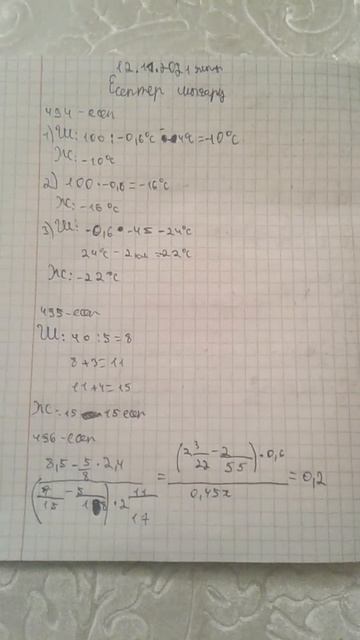 12.11.2021 жыл
Есептер шығару
494-есеп
1) Ш: 100 · -0,6°C - 4°C = -10°C
Ж: -10°C
2) 100 · -0,6 = -16°C
Ж: -16°C
3) Ш: -0,6 · -45 - 24°C
24°C - 2 км = 22°C
Ж: -22°C
495-есеп
Ш: 40 : 5 = 8
8 + 3 = 11
11 + 4 = 15
Ж: 15 15 есеп
496-есеп
8,5 - 5/8 · 2,4 / ( /15 - 5/18) · 2 11/17 = (2 3/22 - 2/55) · 0,6 / 0,45x = 0,2